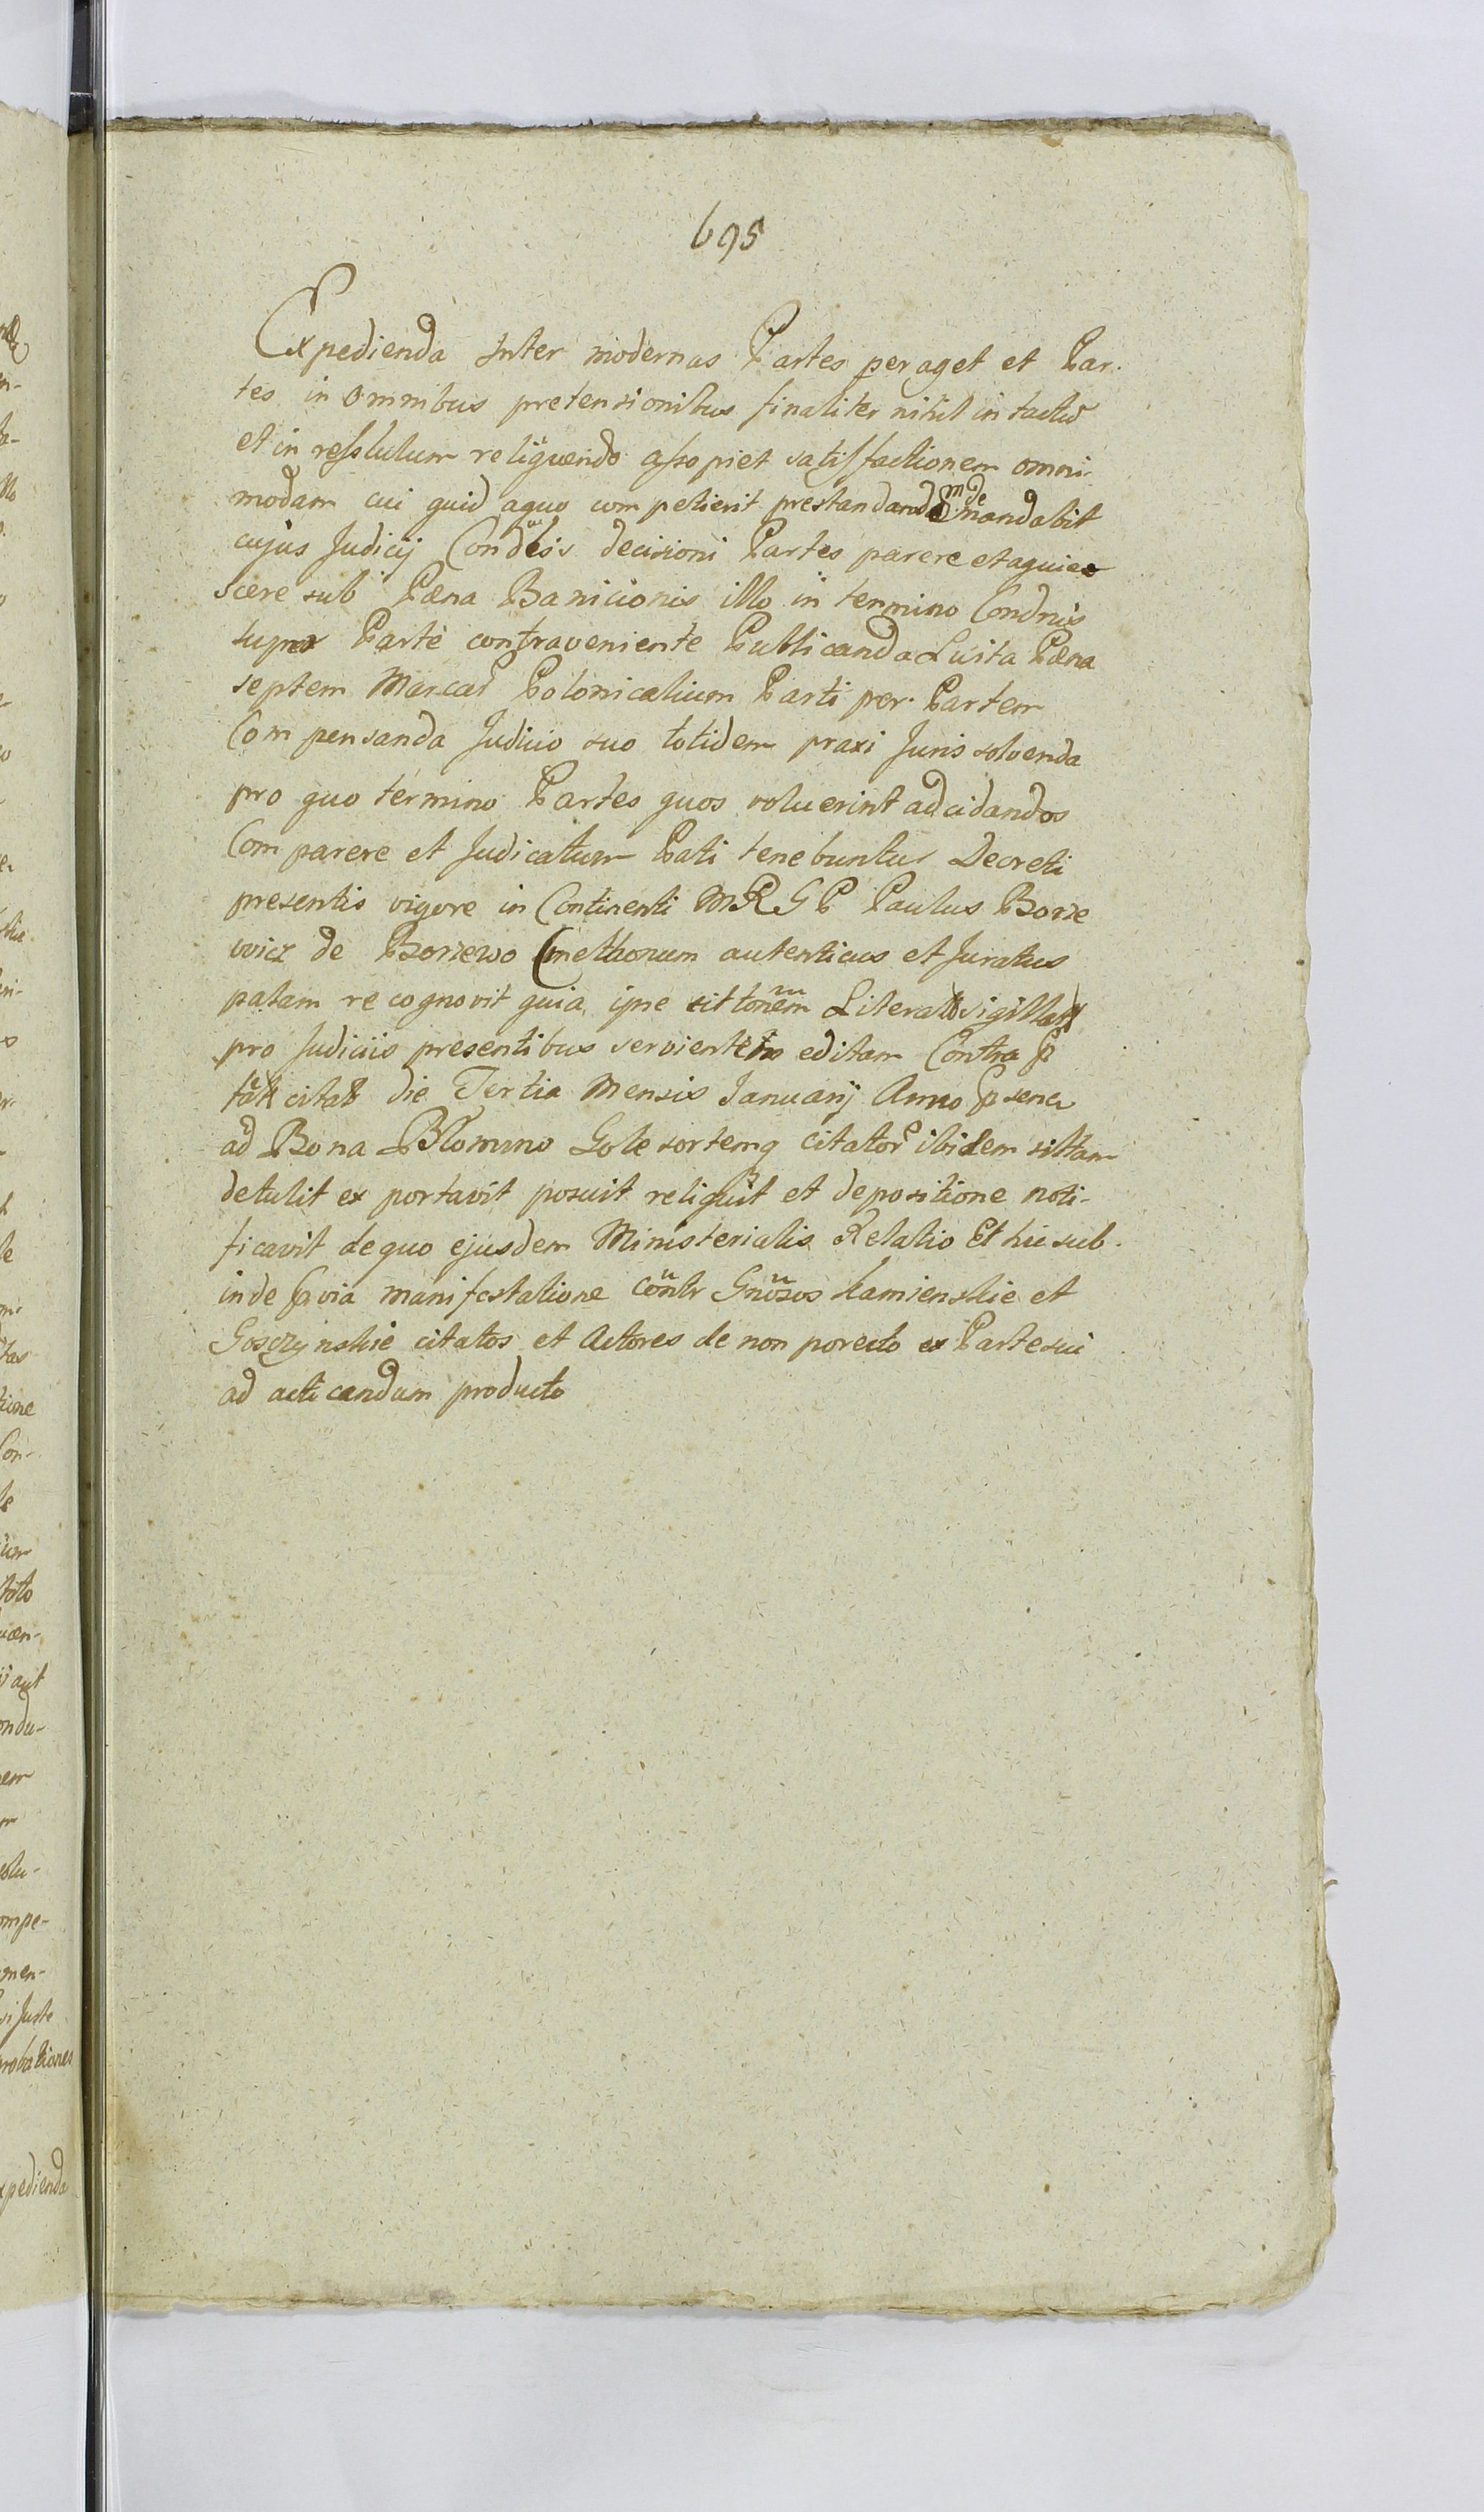 695
Expedienda Inter modernas Partes peraget et Par-
tes in Omnibus pretensionibus finaliter nihil intactũ
et in resolutum reliquendo assopiet satisfactionem omni-
modam cui quid aquo competierit prestandam mandabit
cujus Judicij decisioni Partes parere et aquie
scere sub Pæna Banicionis illo in termino Condnis
super Parte contraveniente Publicanda Luita Pæna
septem Marcar Polonicalium Parti per Partem
Compensanda Judicio suo totidem praxi Juris solvenda
pro quo termino Partes quos voluerint adcidandos
Comparere et Judicatum Pati tenebuntur Decreti
presentis vigore in Continenti MRGP Paulus Borze
wicz de Borzewo Cmethonum autenticus et Juratus
palam recognovit quia ipse cittonem Literal sigillat
pro Judiciis presentibus servientem editam Contra P
tak citat die Tertia Mensis Januarij Anno Psenci
ad Bona Blomino Gole sortemq citator ibidem sittam
detulit ex portavit posuit reliquit et depositione noti-
ficavit dequo ejusdem Ministerialis Relatio Et hic sub-
inde Pvia manifestatione contr Gnosos Kamienskie et
Gosczynskie citatos et Actores de non porecto ex Parte sui
ad acticandum producto